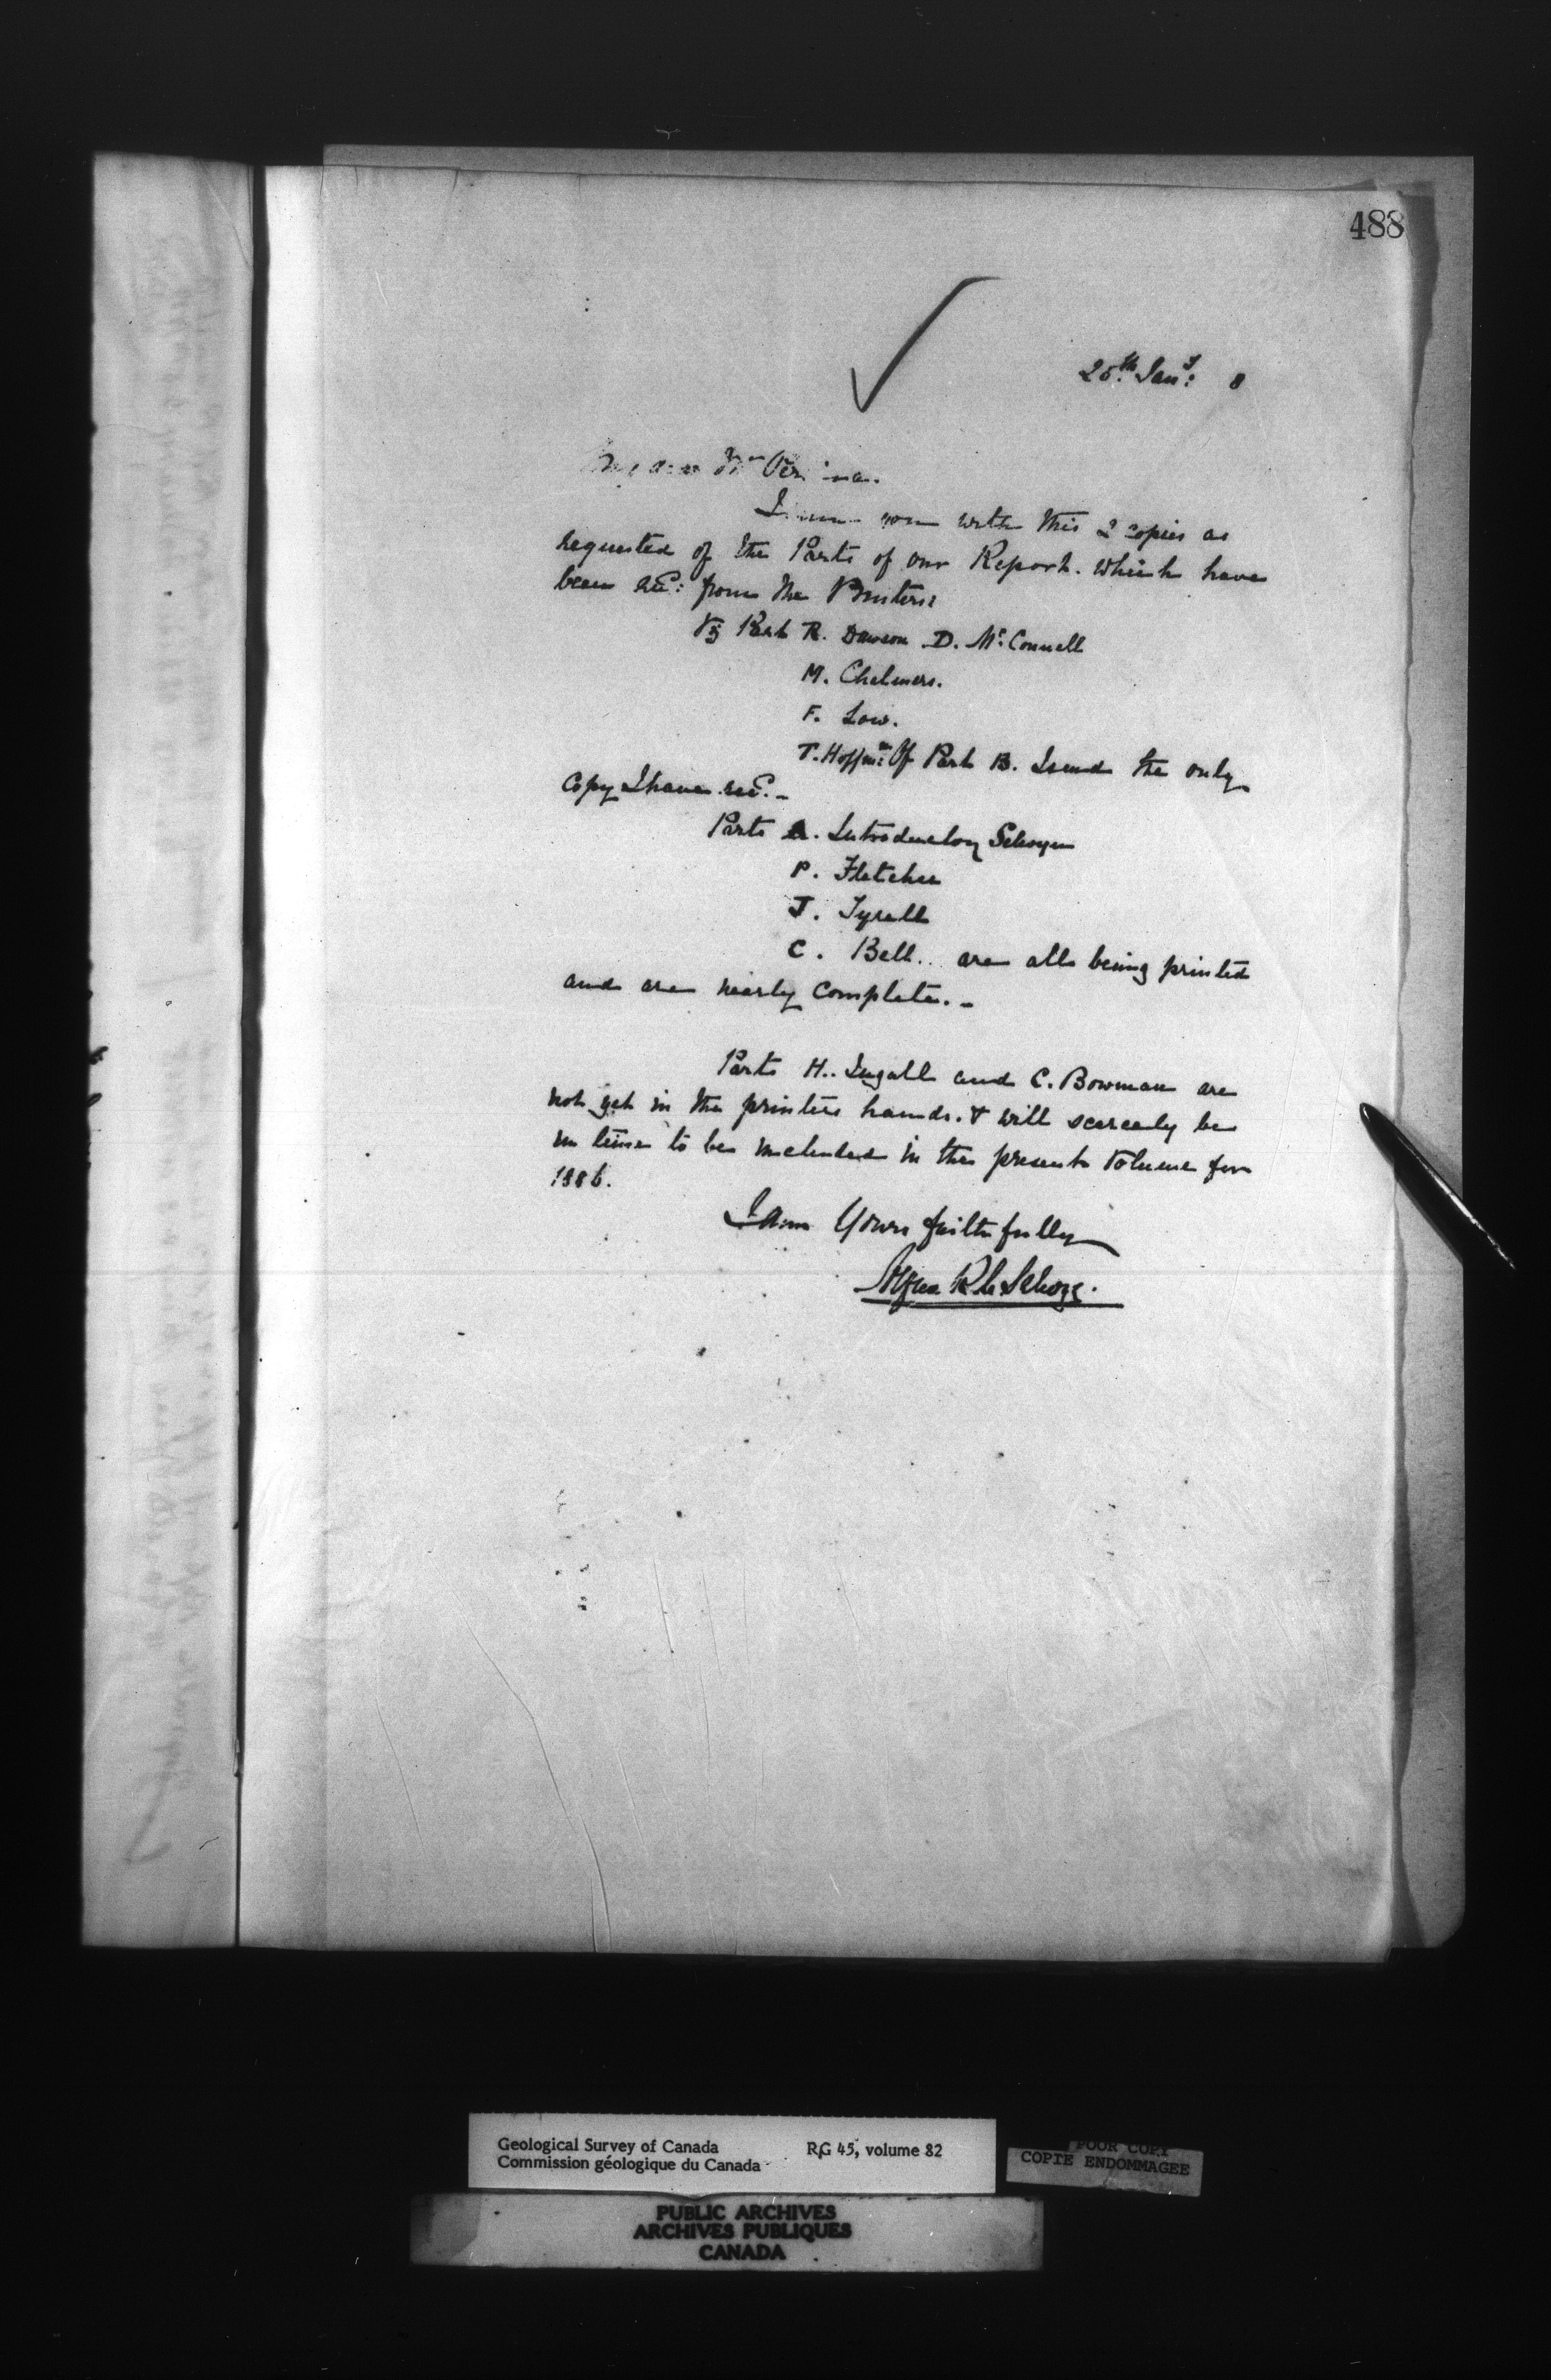 488
25th Jany: 8
My dear Mr
you with this 2 copies as
requested of the Parts of our Report. which have
been recd: from the Printers:
Viz Part R. Dawson. D. McConnell
M. Chalmers.
F. Low.
T. Hoffmn: Of Part B. I send the only
copy I have recd. -
Parts A. Introductory Selwyn
P. Fletcher
J. Tyrell
C. Bell.. are all being printed
and are nearly complete. -
Parts H.. Ingall and C. Bowman are
not yet in the printers hands. & will scarcely be
in time to be included in the present Volume for
1886.
I am Yours faithfully
Alfred R C Selwyn.
Geological Survey of Canada RG 45, volume 82
Commission géologique du Canada
POOR COPY
COPIE ENDOMMAGEE
PUBLIC ARCHIVES
ARCHIVES PUBLIQUES
CANADA